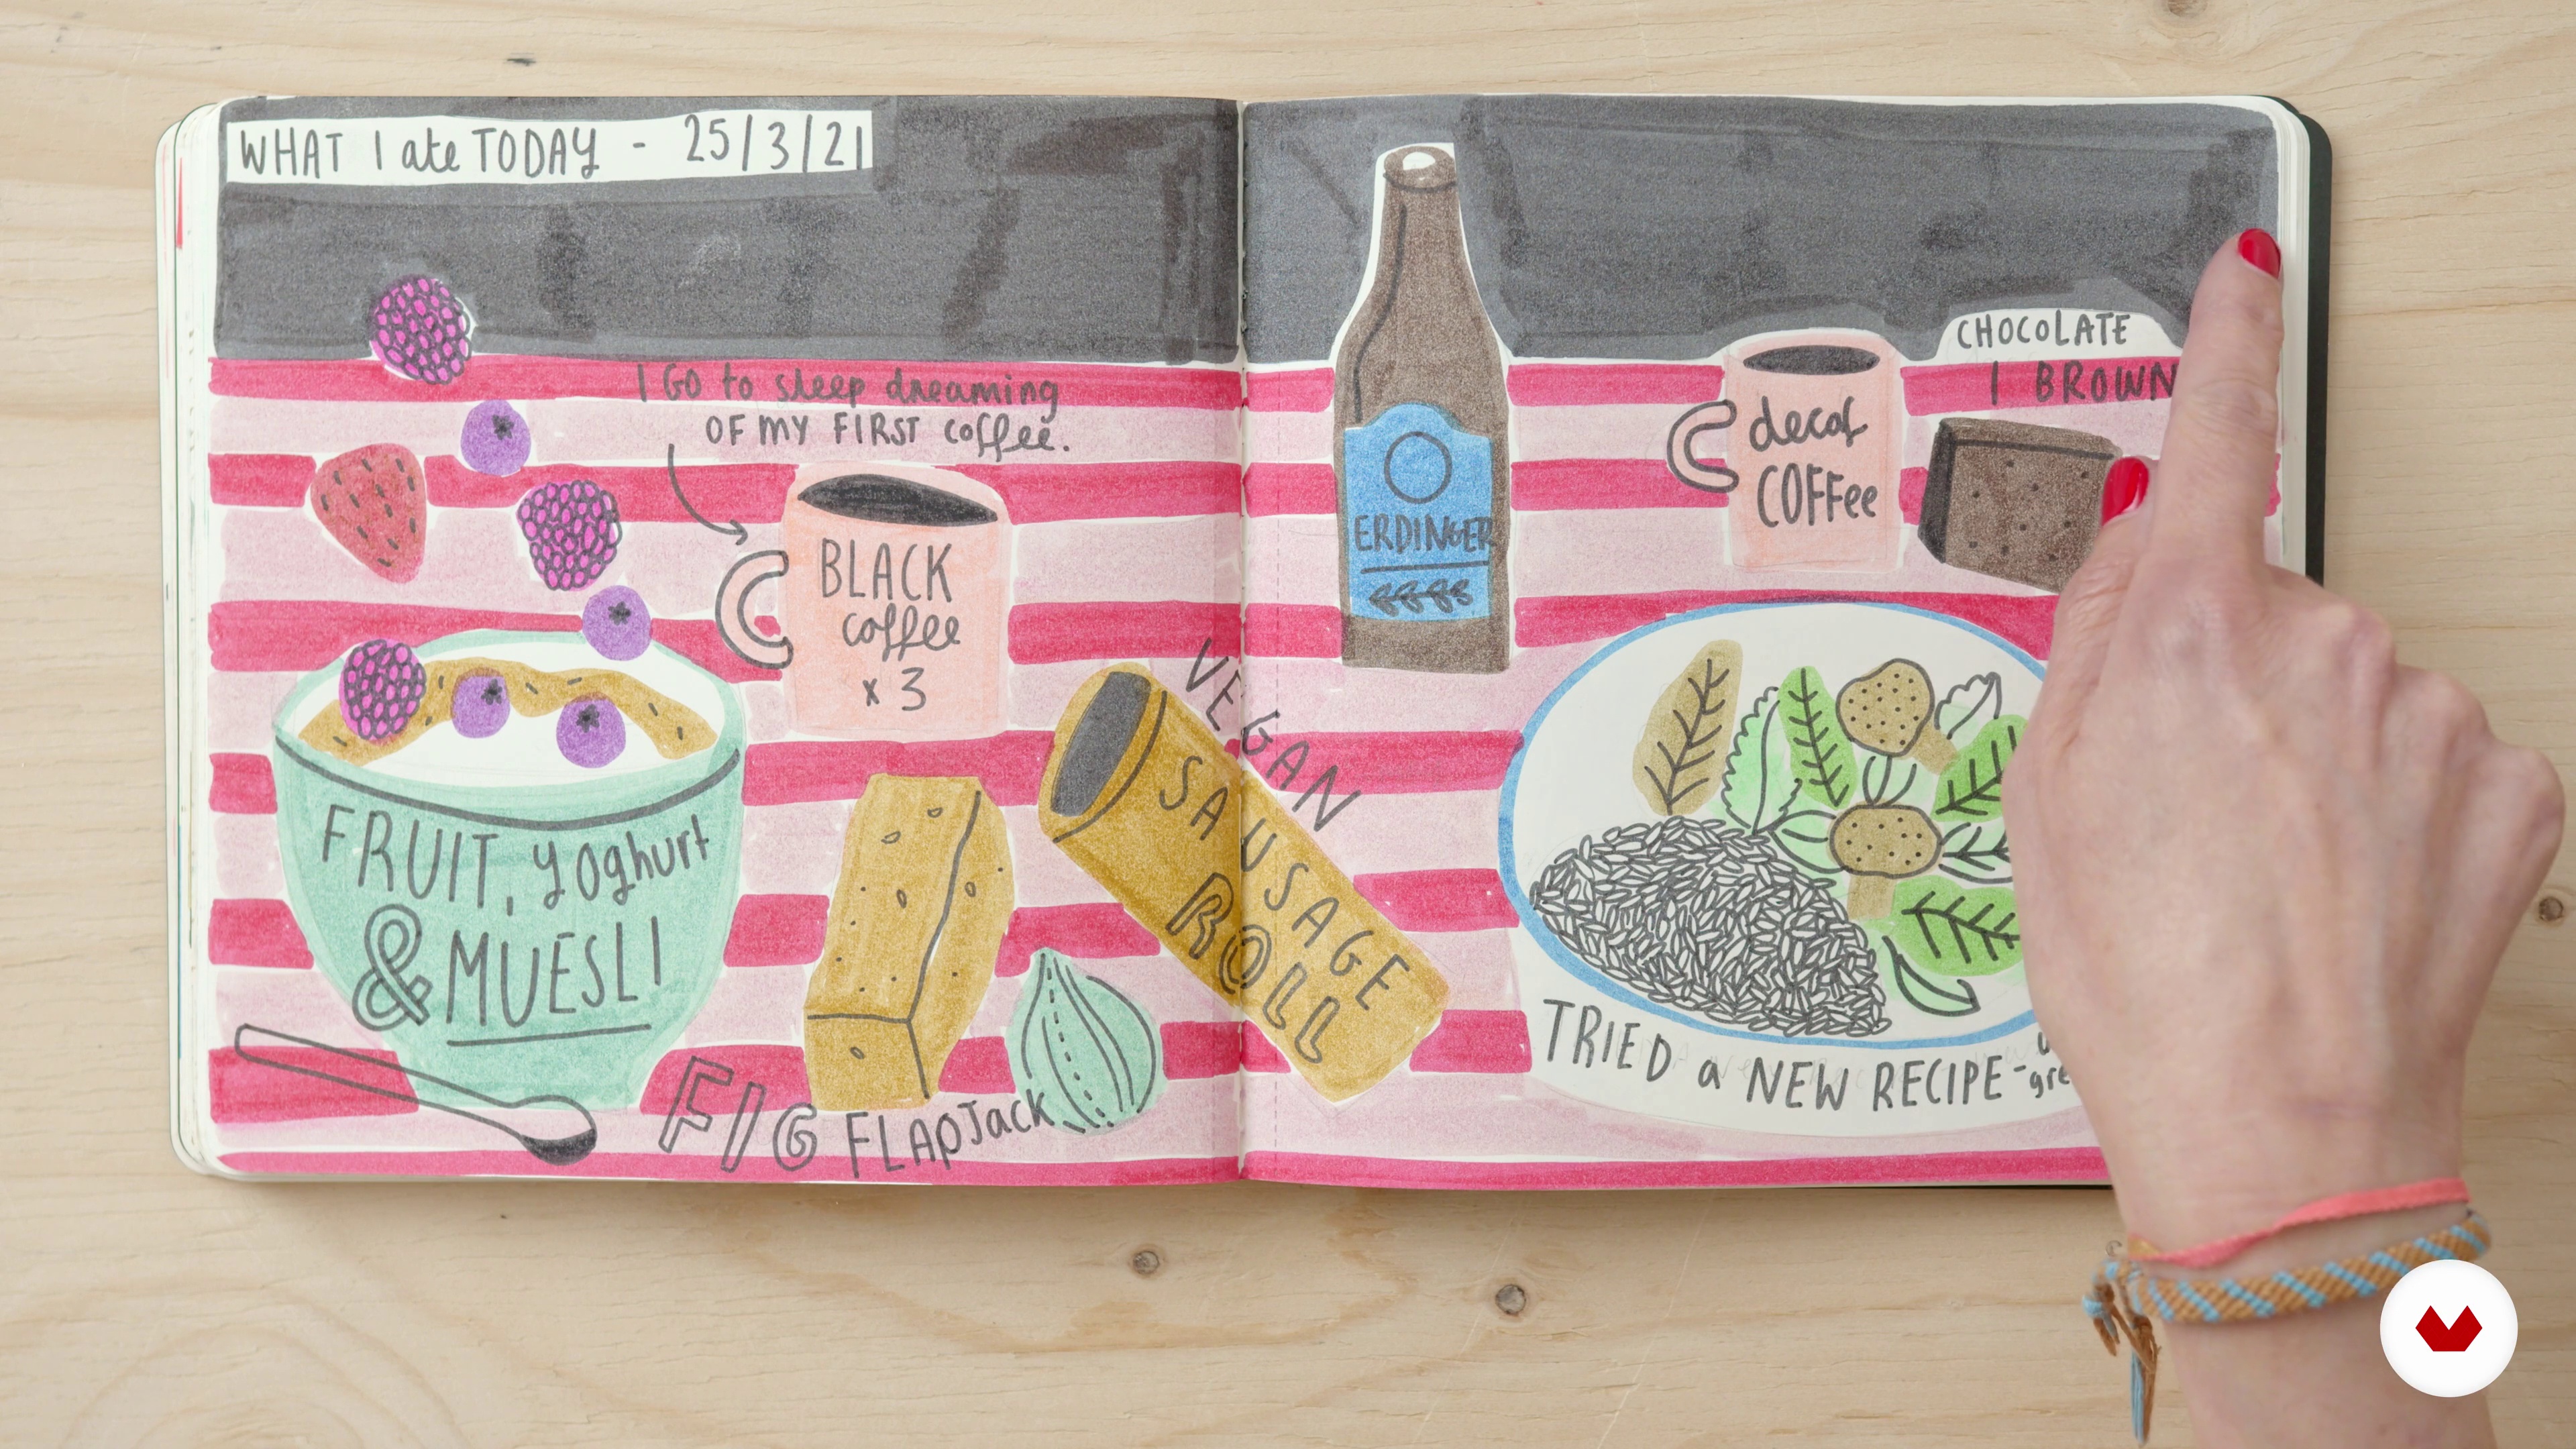 WHAT I ate TODAY - 25/3/21
I GO to sleep dreaming
OF MY FIRST coffee.
BLACK
coffee
x 3
FRUIT, yoghurt
& MUESLI
FIG FLAPJack
VEGAN
SAUSAGE
ROLL
ERDINGER
decaf
COFFee
CHOCOLATE
BROWN
TRIED a NEW RECIPE -